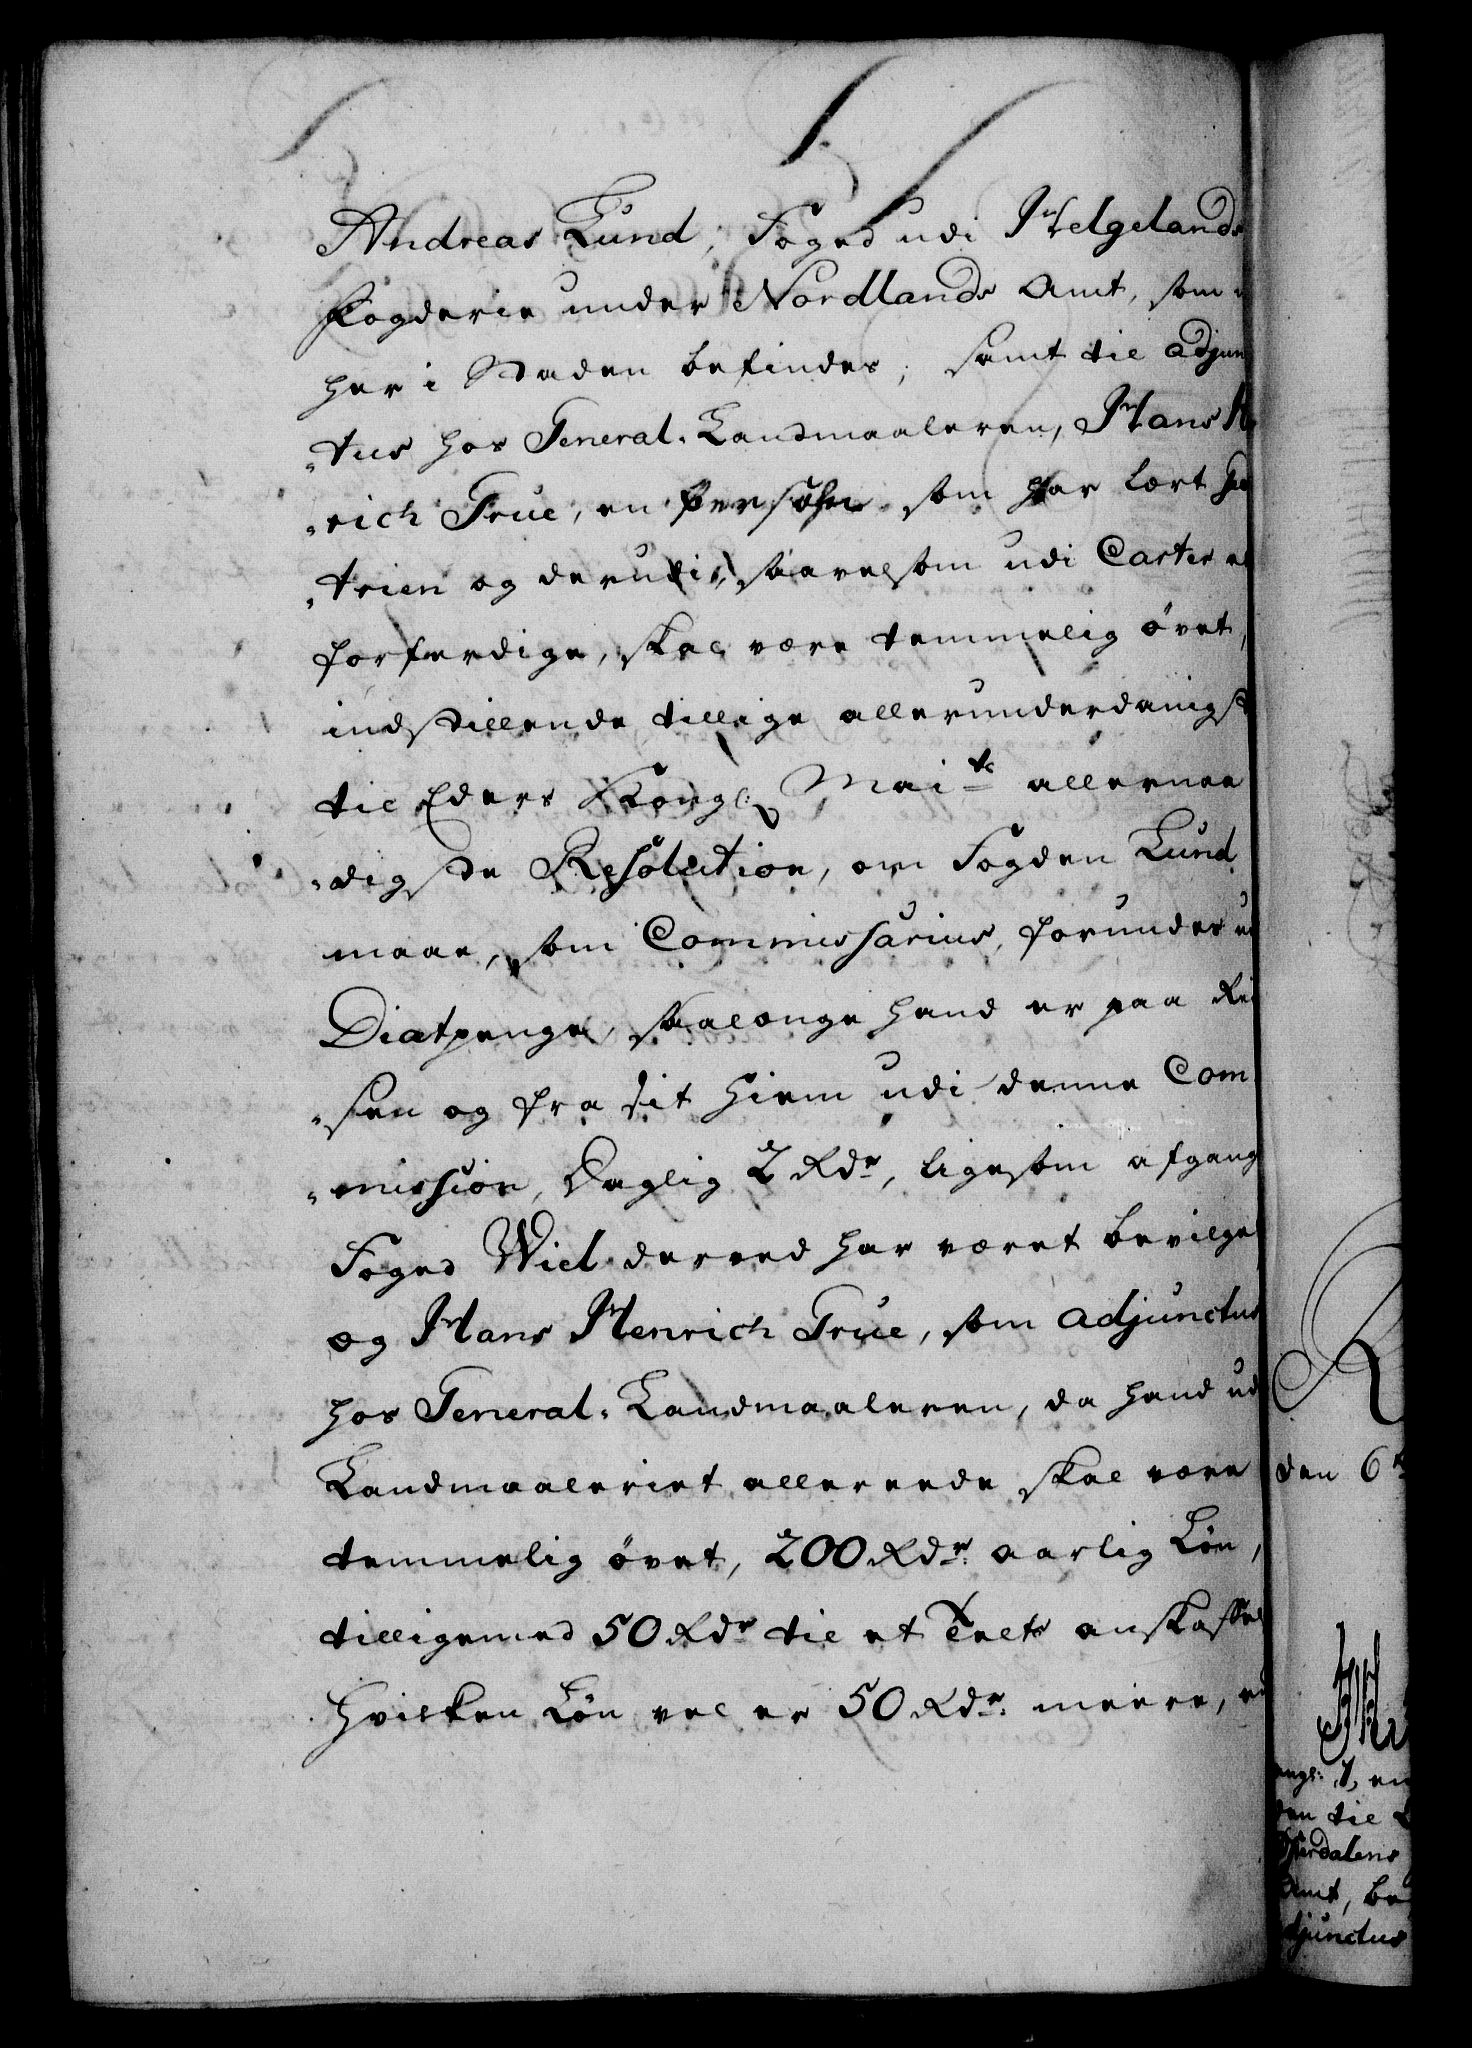 Andreas Lund, Foged udi Helgelands
Fogderie under Nordlands Amt, som
her i Staden befindes, samt til adjun
„tus hos General-Landmaaleren, Hans
„rich True, en Persohn som har lært
„trien og derudi, saavelsom udi Carter
forferdige, skal være temmelig övet,
indstillende tillige allerunderdanigst
til Eders Kongl: Mai.ts allernaa
„digste Resolution, om Fogden Lund
maae, som Commissarius, forundes
Diætpenge, saalænge hand er paa Rei
„sen og fra sit Hiem udi denne Com
„mission, Daglig 2 Rdr, ligesom afgang
Foged Wiel derved har været bevilget
og Hans Henrich True, som adjunctus
hos General-Landmaaleren, da hand ud
Landmaaleriet allereede skal være
temmelig övet, 200 Rdr. aarlig Lön,
tilligemed 50 Rdr til et Telts anskaffel
Hvilken Lön vel er 50 Rdr. meere,
den 6
en
den til
Österdalens
Amt, be
djunctus